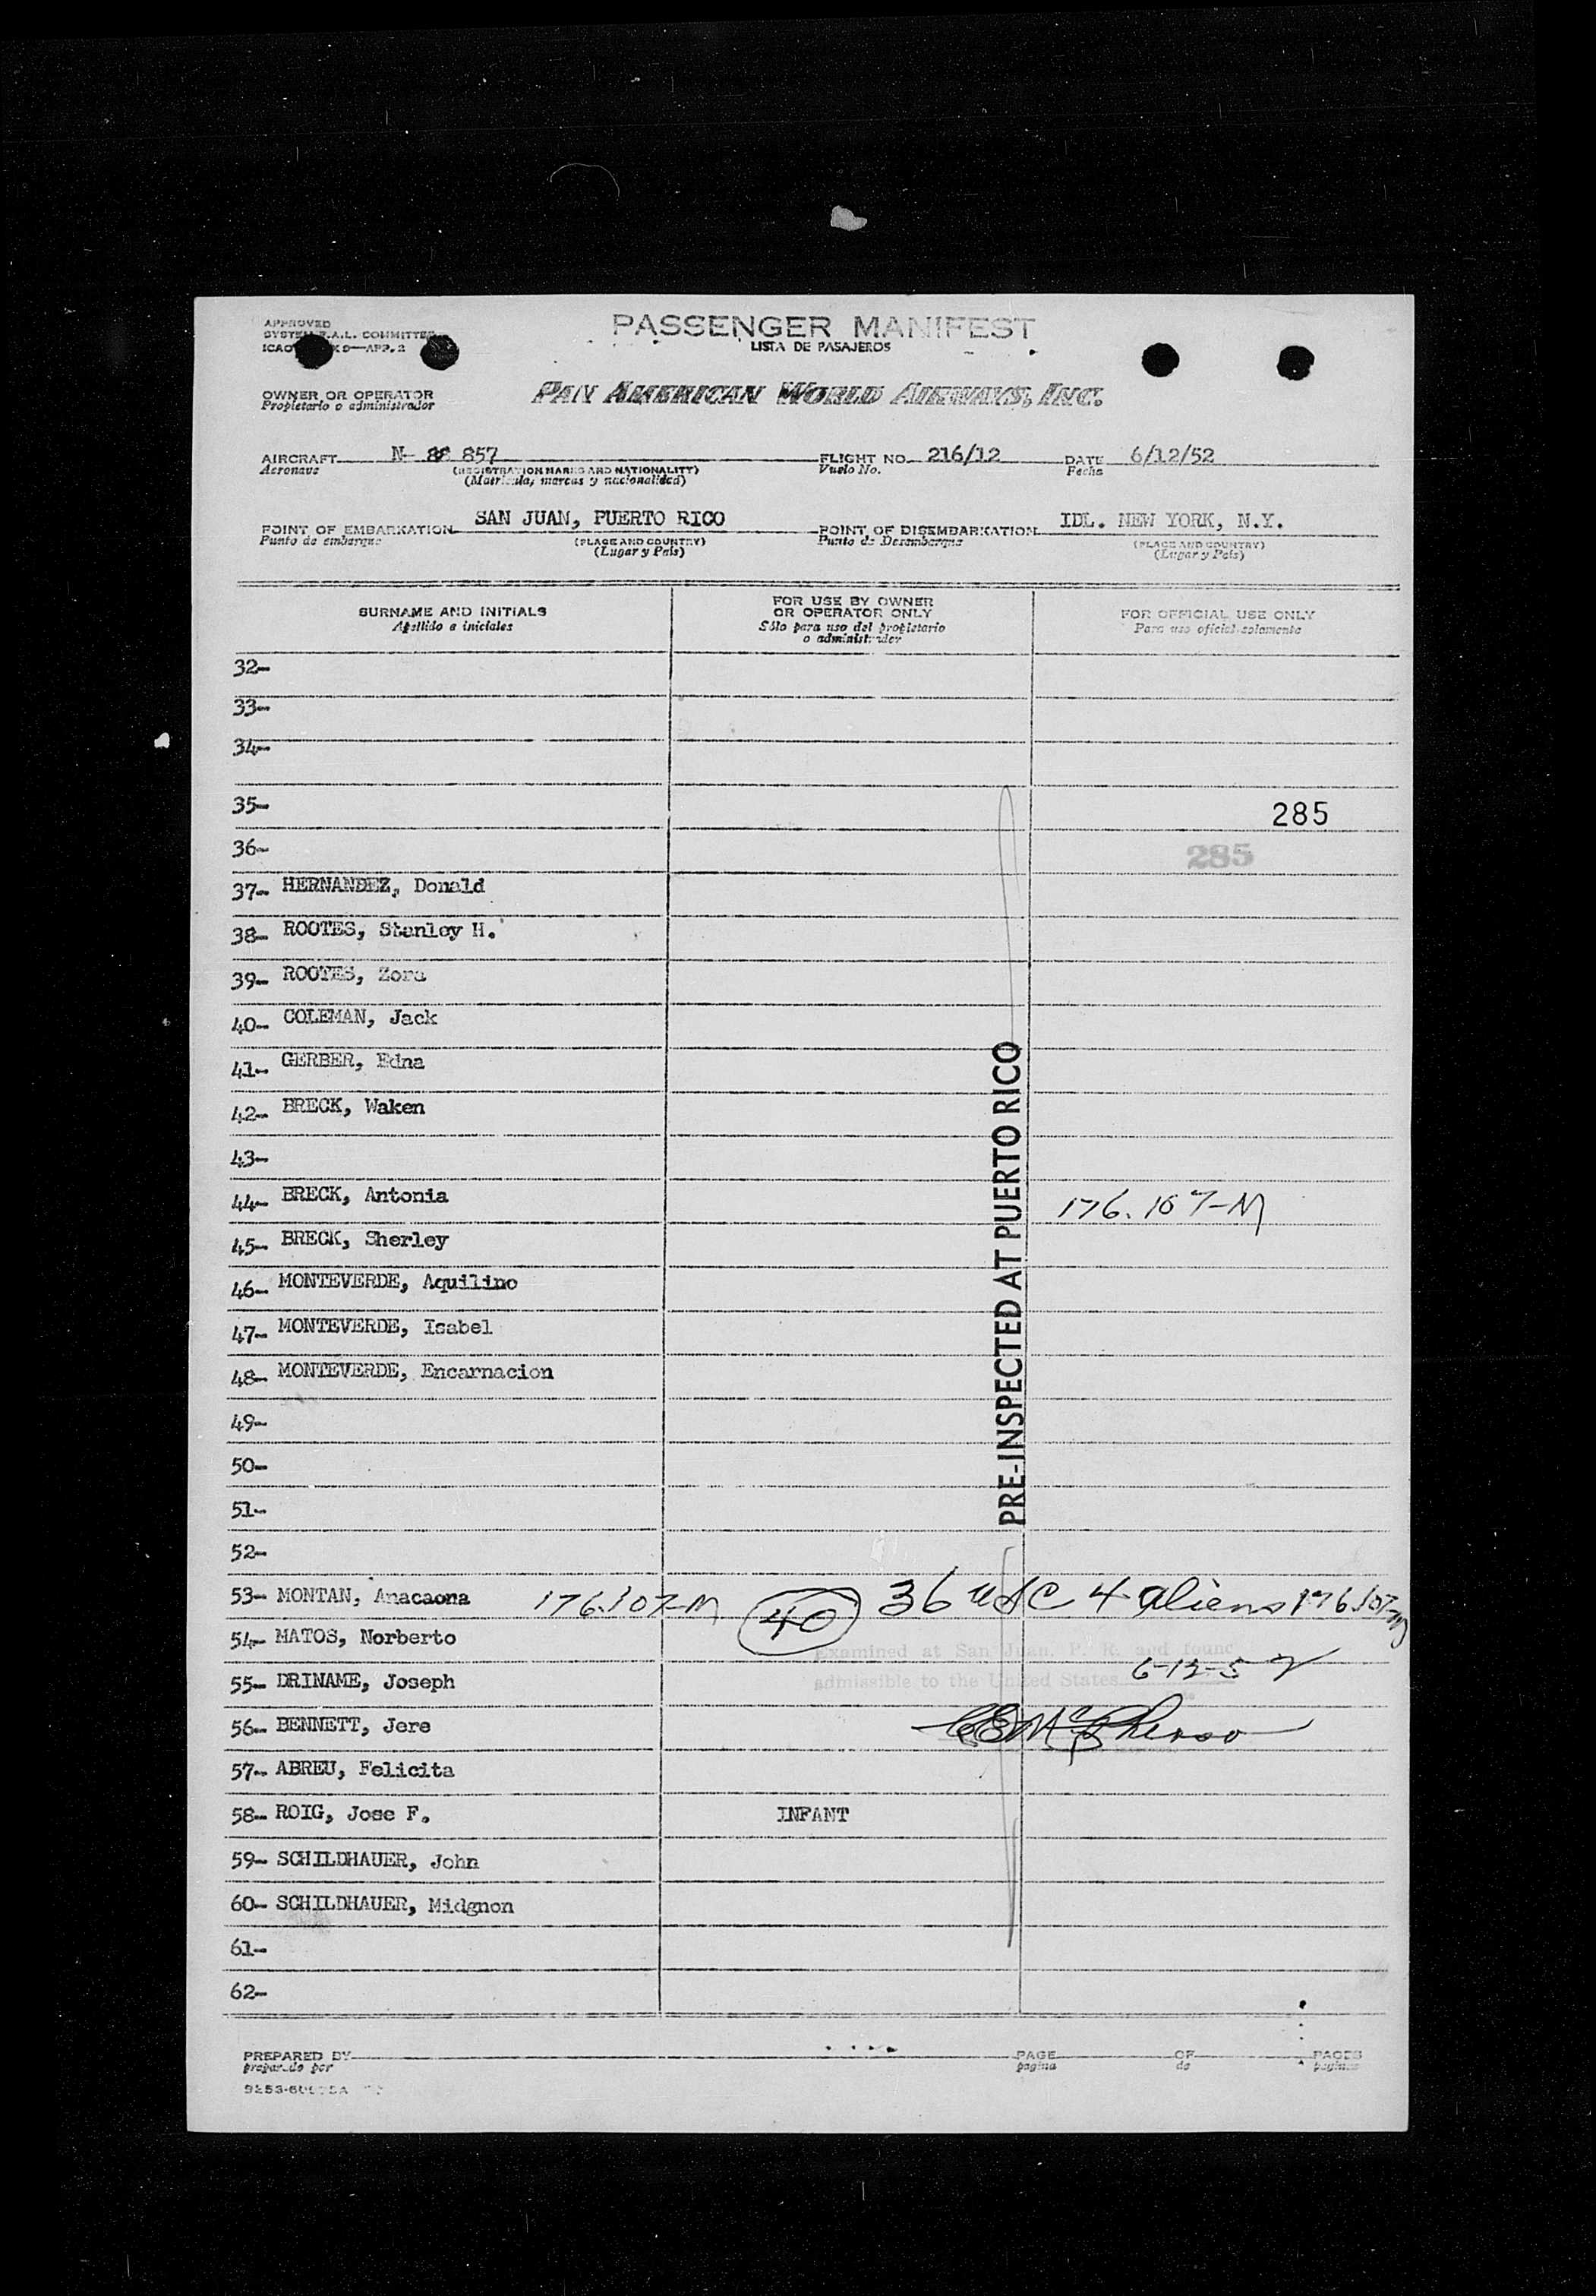 APPROVED
PASSENGER MANIFEST
LISTA DE PASAJEROS
OWNER OR OPERATOR
Propietario o administrador
PAN AMERICAN WORLD AIRWAYS, INC.
AIRCRAFT N- 88 857 FLIGHT NO. 216/12 DATE 6/12/52
Aeronave (REGISTRATION MARKS AND NATIONALITY) Vuelo No. Fecha
(Matrícula, marcas y nacionalidad)
POINT OF EMBARKATION SAN JUAN, PUERTO RICO POINT OF DISEMBARKATION IDL. NEW YORK, N.Y.
Punto de embarque (PLACE AND COUNTRY) Punto de Desembarque (PLACE AND COUNTRY)
(Lugar y País) (Lugar y País)
SURNAME AND INITIALS FOR USE BY OWNER OR OPERATOR ONLY FOR OFFICIAL USE ONLY
Apellido e iniciales Sólo para uso del propietario o administrador Para uso oficial solamente
32-
33-
34-
35- 285
36- 285
37- HERNANDEZ, Donald
38- ROOTES, Stanley H.
39- ROOTES, Zora
40- COLEMAN, Jack
41- GERBER, Edna
42- BRECK, Waken
43-
44- BRECK, Antonia 176.107-M
45- BRECK, Sherley
46- MONTEVERDE, Aquilino
47- MONTEVERDE, Isabel
48- MONTEVERDE, Encarnacion
49-
50-
51-
52-
PRE-INSPECTED AT PUERTO RICO
53- MONTAN, Anacaona 176.107-M 40 36 USC 4 aliens 176.107-M
54- MATOS, Norberto
Examined at San Juan, P. R. and found
55- DRINAME, Joseph admissible to the United States 6-12-52
56- BENNETT, Jere
57- ABREU, Felicita
58- ROIG, Jose F. INFANT
59- SCHILDHAUER, John
60- SCHILDHAUER, Midgnon
61-
62-
PREPARED BY PAGE OF PAGES
preparado por pagina de paginas